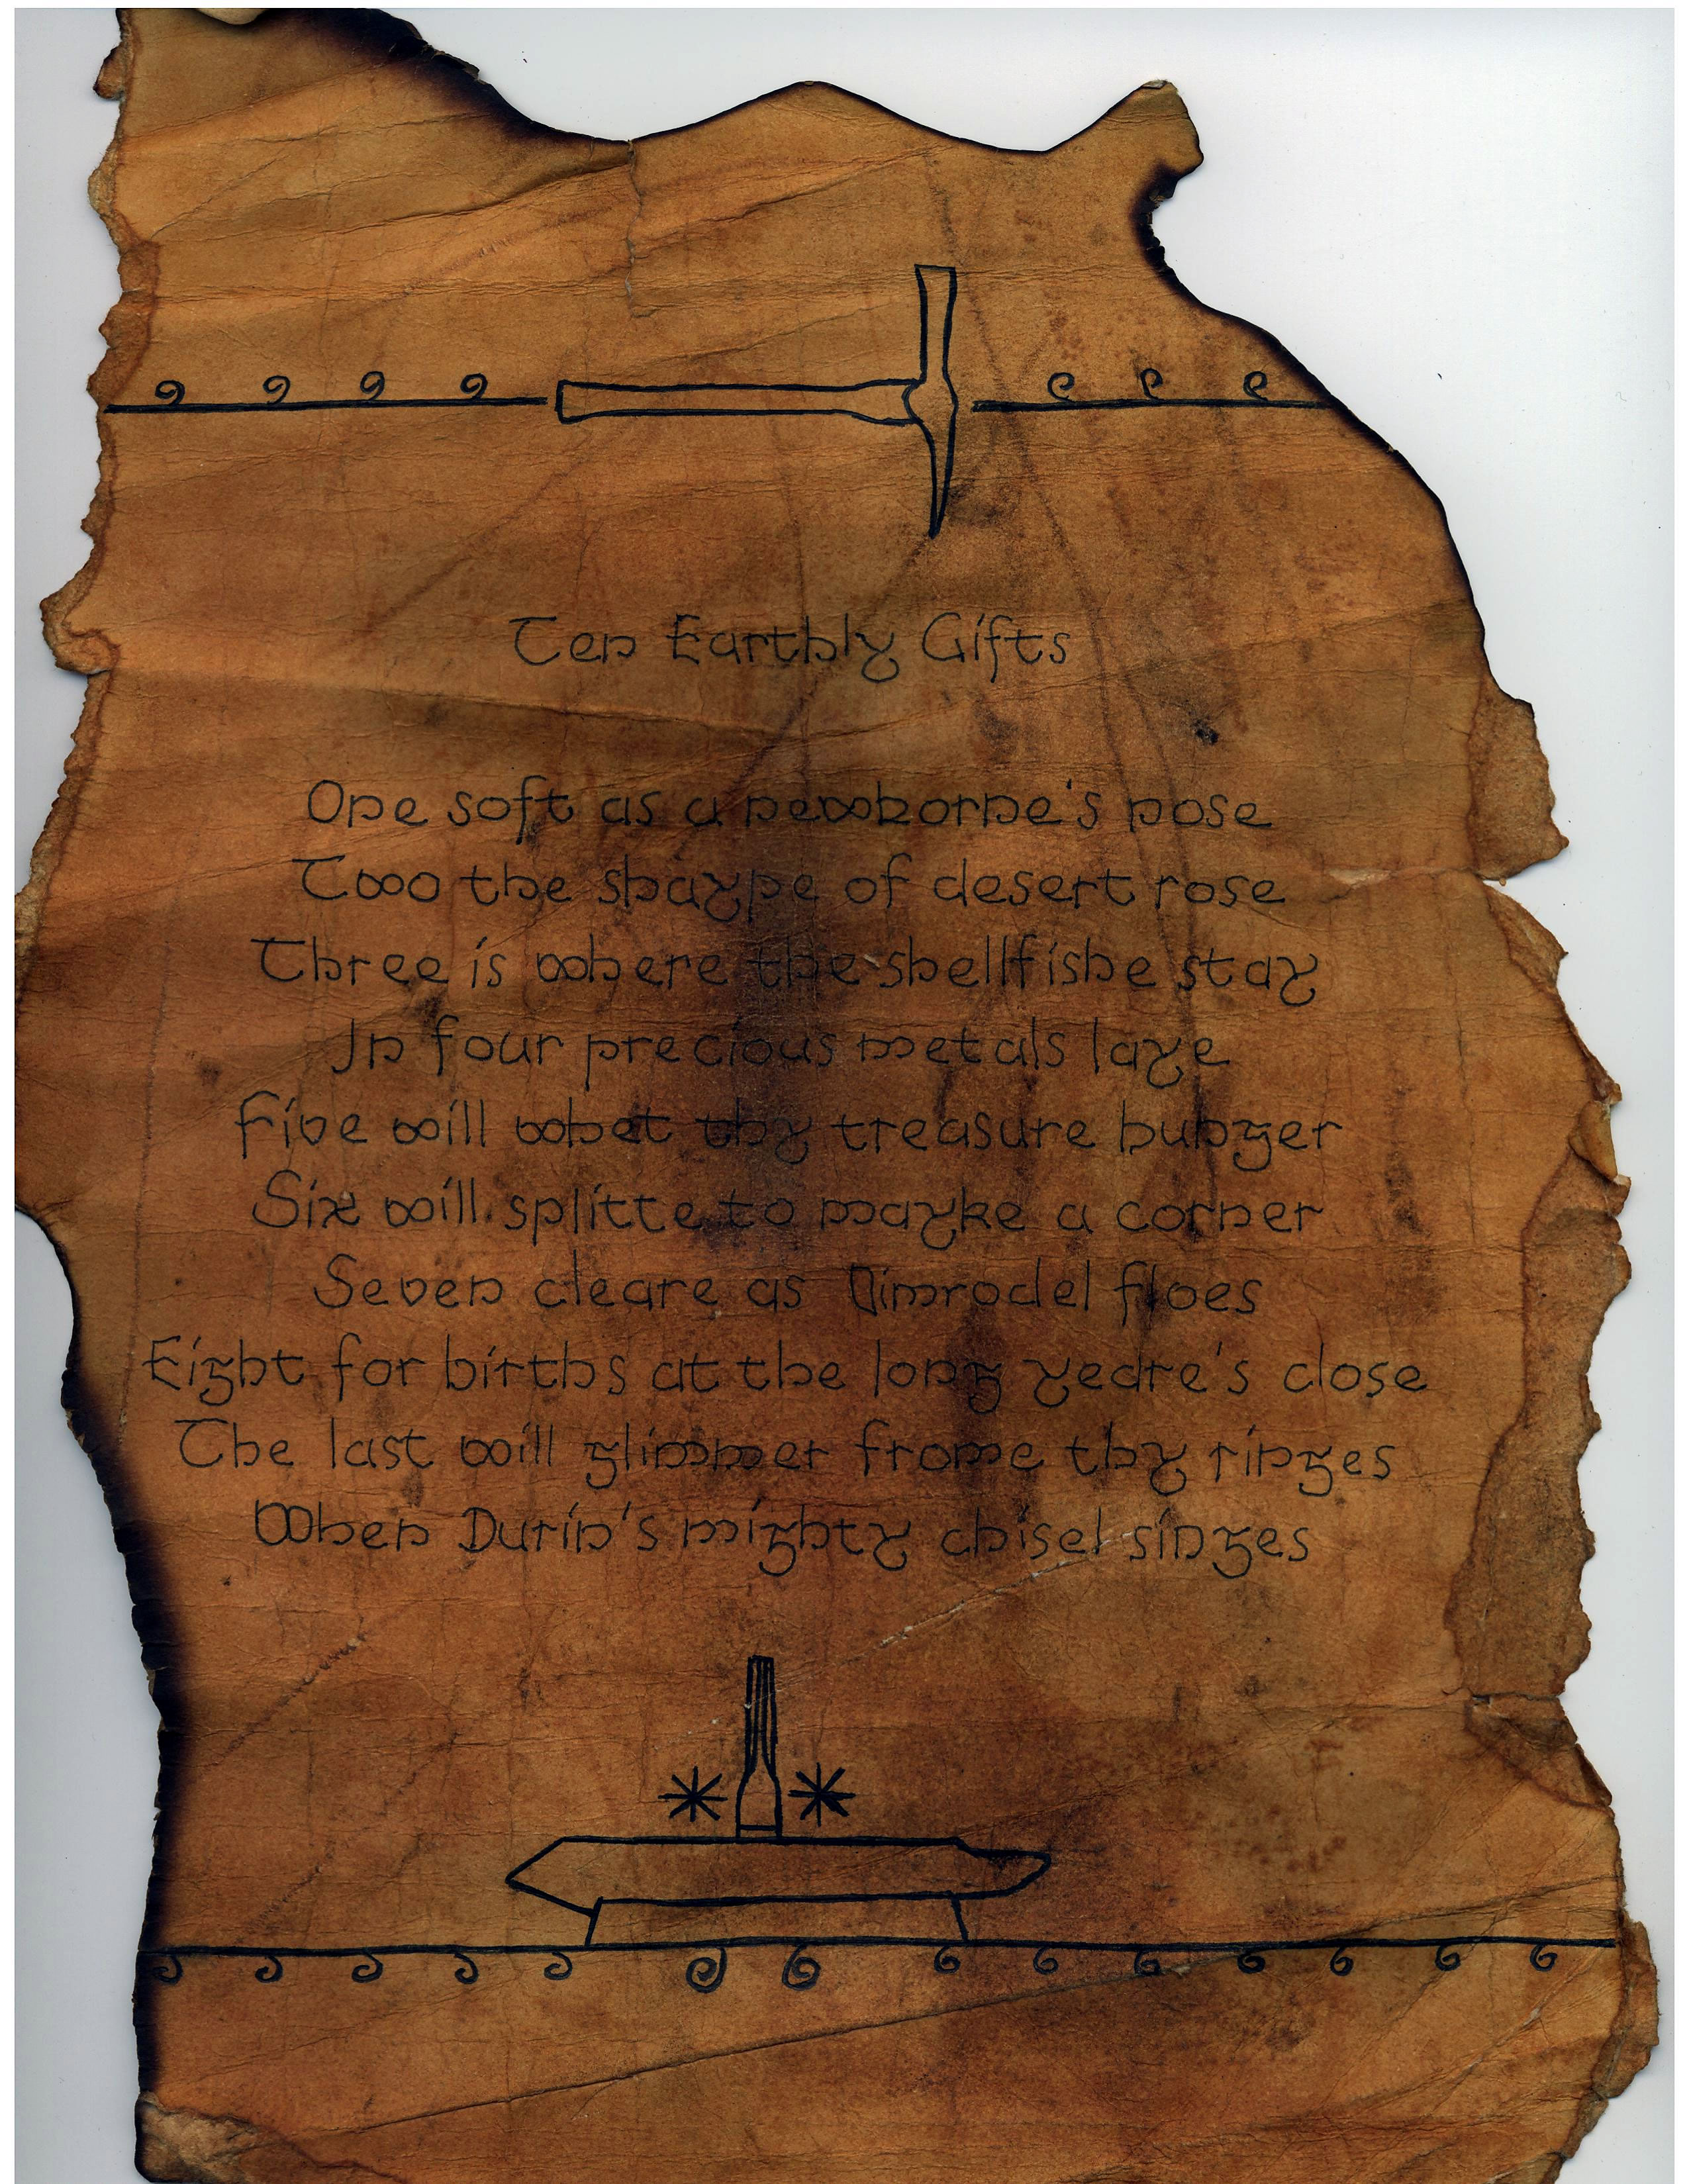 Ten Earthly Gifts
One soft as a newborne's nose
Two the shaype of desert rose
Three is where the shellfishe stay
In four precious metals laye
Five will whet thy treasure hunger
Six will splitte to mayke a corner
Seven cleare as Nimrodel floes
Eight for births at the long yeare's close
The last will glimmer frome thy ringes
When Durin's mighty chisel singes